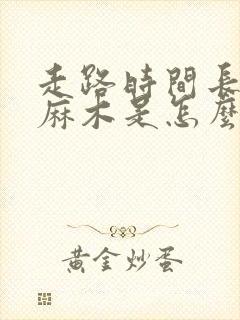 走路時間長
麻木是怎麼
黃金炒蛋